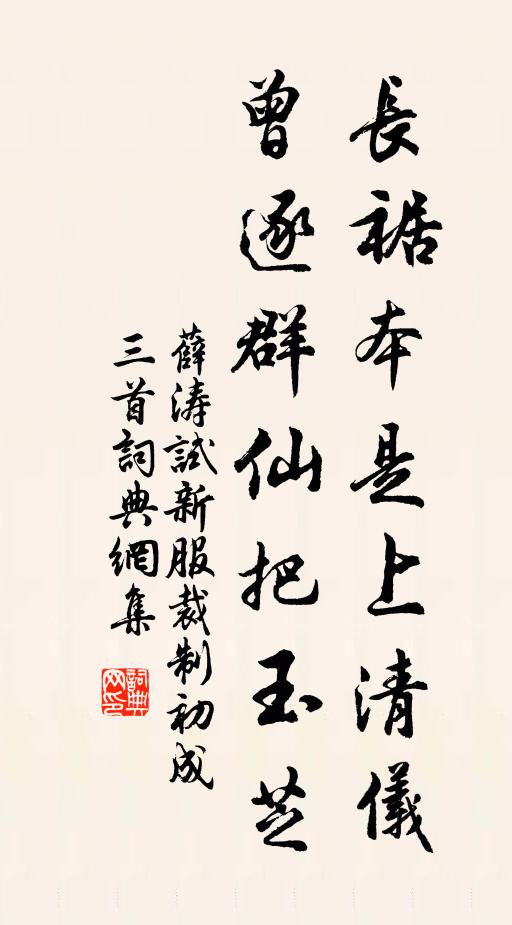 長裾本是上清儀
曾逐群仙把玉芝
薛涛試新服裁制初成
三首詞典網集
詞典
网印